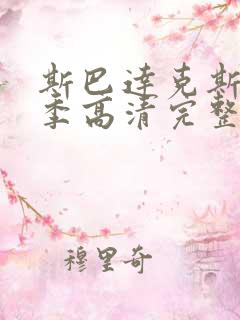 斯巴达克斯
季高清完整
穆里奇